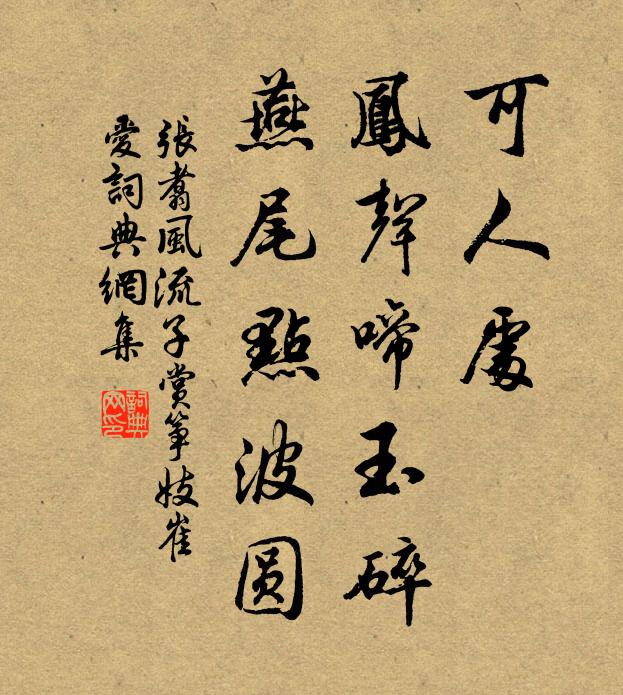 可人處
鳳聲啼玉碎
燕尾點波圓
張翥風流子賞箏妓崔
愛詞典網集
詞典
网印